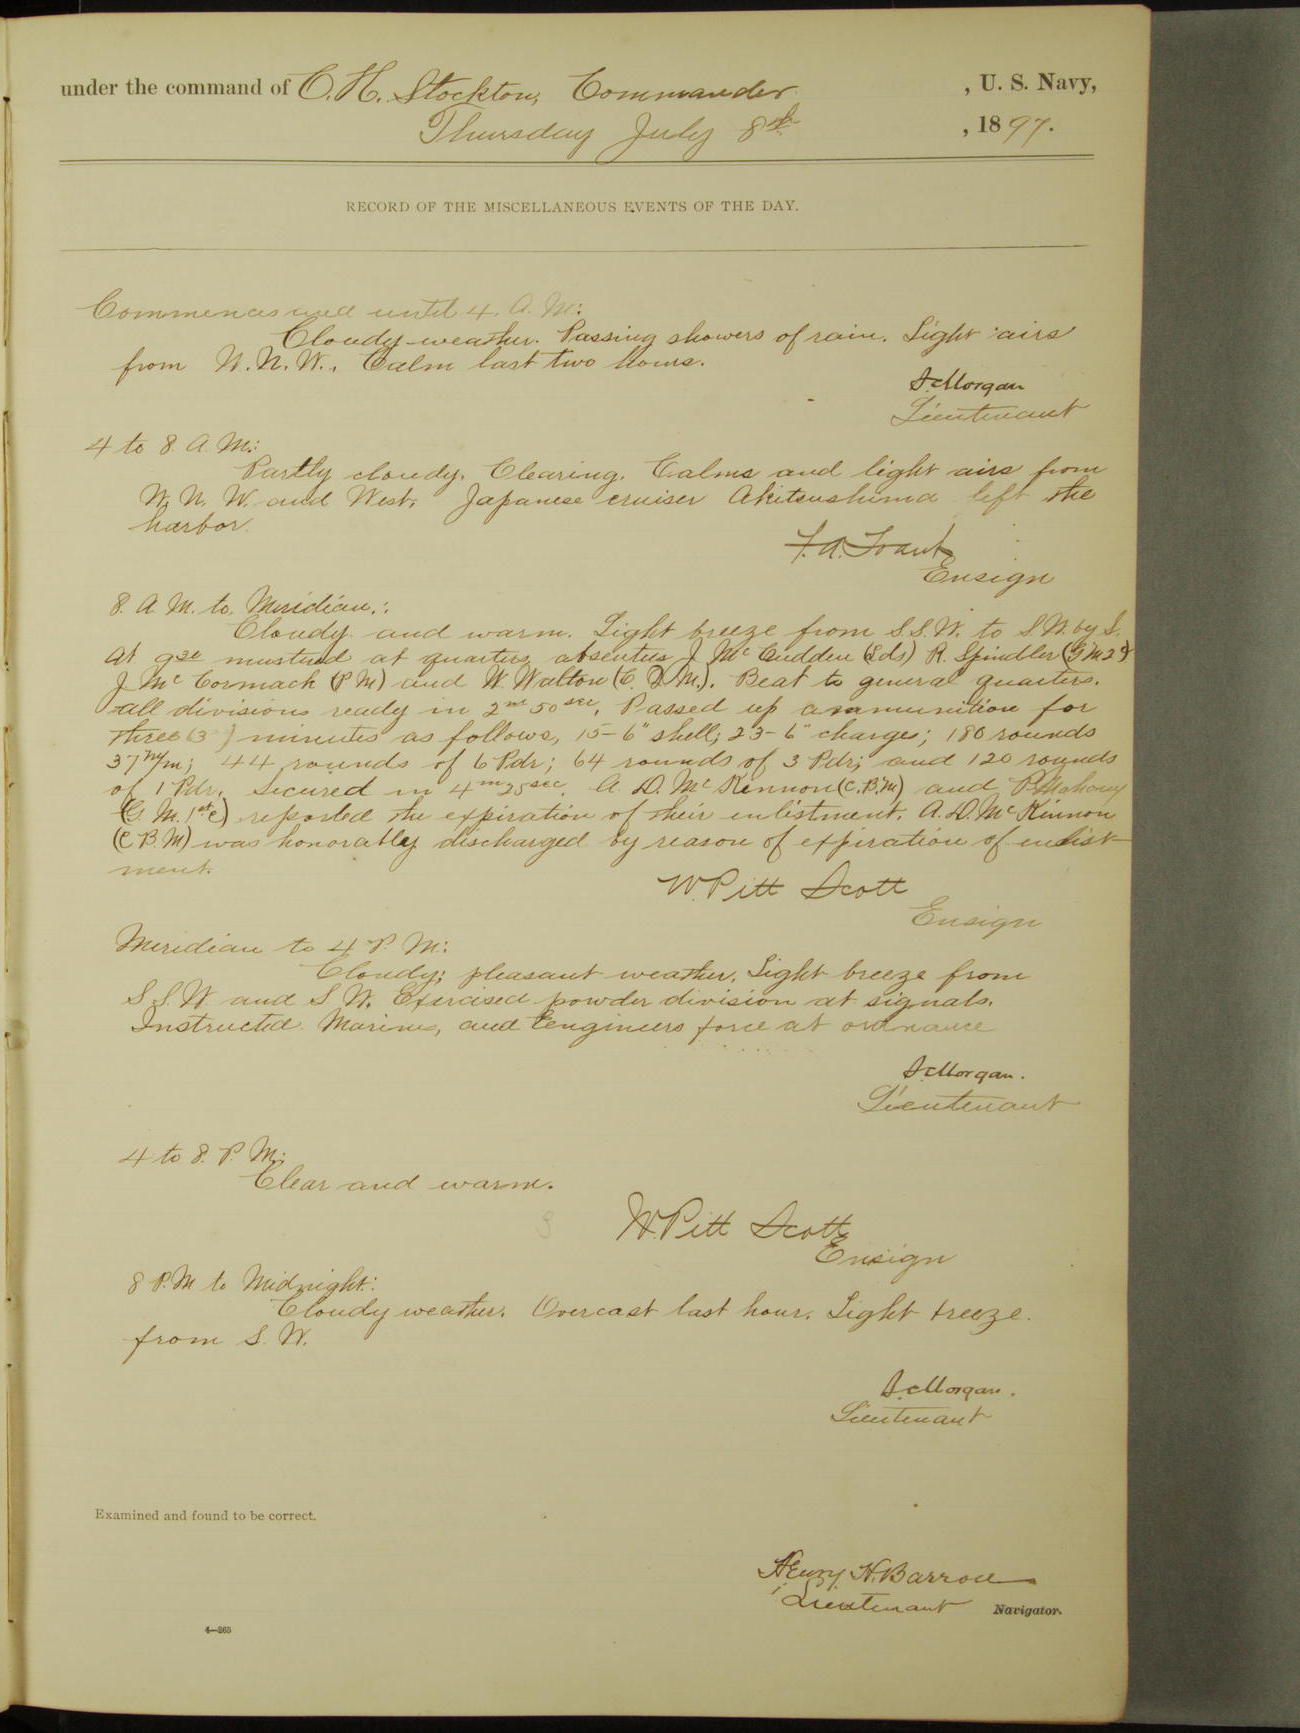 under the command of C. H. Stockton, Commander, U. S. Navy,
Thursday July 8th, 1897.
RECORD OF THE MISCELLANEOUS EVENTS OF THE DAY.
Commences and until 4. A. M:
Cloudy weather. Passing showers of rain. Light airs
from W. N. W., Calm last two hours.
S. Morgan
Lieutenant
4 to 8. A. M.:
Partly cloudy. Clearing. Calms and light airs from
W. N. W. and West. Japanese cruiser Akitsushima left the
harbor.
F. A. Traut
Ensign
8. A. M. to Meridian.:
Cloudy and warm. Light breeze from S.S.W. to S.W. by S.
At 9 30 mustered at quarters absentees J. Mc Cudden (Lds) R. Spindler (G M 2 c)
J. Mc Cormack (P M) and W. Walton (C. Q. M.). Beat to general quarters.
all divisions ready in 2 m 50 sec. Passed up ammunition for
three (3) minutes as follows, 15-6" shell; 23-6" charges; 180 rounds
37 m/m; 44 rounds of 6 Pdr; 64 rounds of 3 Pdr; and 120 rounds
of 1 Pdr. Secured in 4 m 25 sec. A. D. Mc Kinnon (C.B.M) and P. Mahoney
(G. M. 1st c) reported the expiration of their enlistment. A. D. Mc Kinnon
(C B. M) was honorably discharged by reason of expiration of enlist-
ment.
W. Pitt Scott
Ensign
Meridian to 4 P. M:
Cloudy; pleasant weather. Light breeze from
S. S. W and S W. Exercised powder division at signals.
Instructed Marines, and Engineers force at ordnance
S. Morgan.
Lieutenant
4 to 8. P. M:
Clear and warm.
W. Pitt Scott
Ensign
8 P. M to Midnight:
Cloudy weather. Overcast last hour. Light breeze
from S. W.
S. Morgan.
Lieutenant
Examined and found to be correct.
Henry H. Barroll
Lieutenant Navigator.
4—265